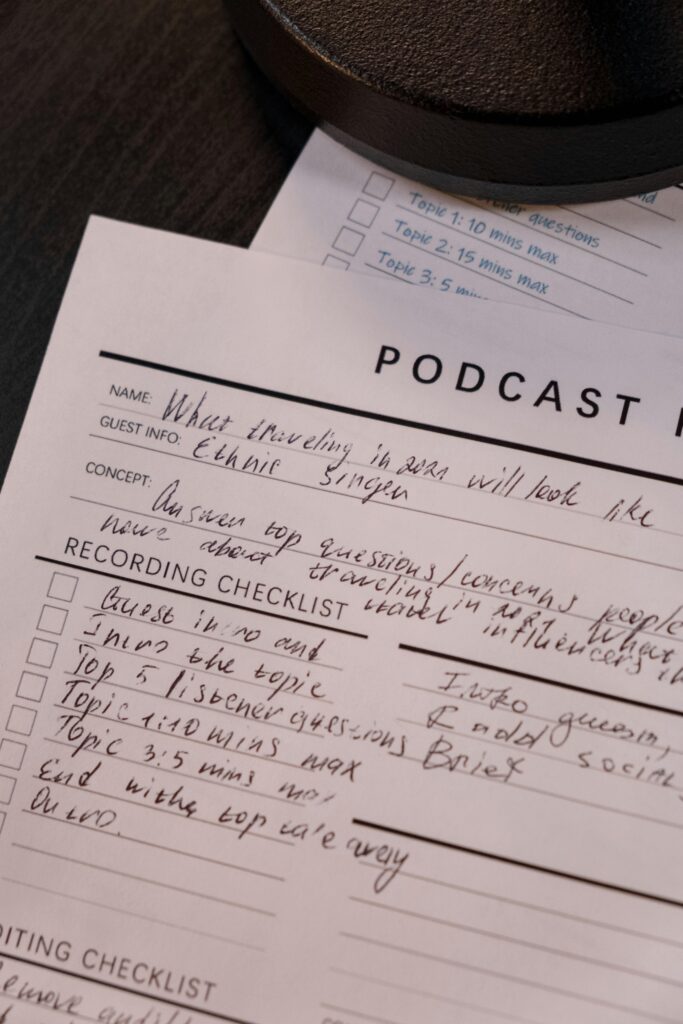 questions
Topic 1: 10 mins max
Topic 2: 15 mins max
Topic 3: 5 mins
PODCAST
NAME: What traveling in 2021 will look like
GUEST INFO: Ethnie Singen
CONCEPT: Answer top questions/concerns people
have about traveling in 2021 what
travel influencers
RECORDING CHECKLIST
Guest intro and
Intro the topic
Top 5 listener questions
Topic 1:10 mins max
Topic 3:5 mins max
End with a top take away
Outro.
Intro
& add social
Brief
DITING CHECKLIST
emove